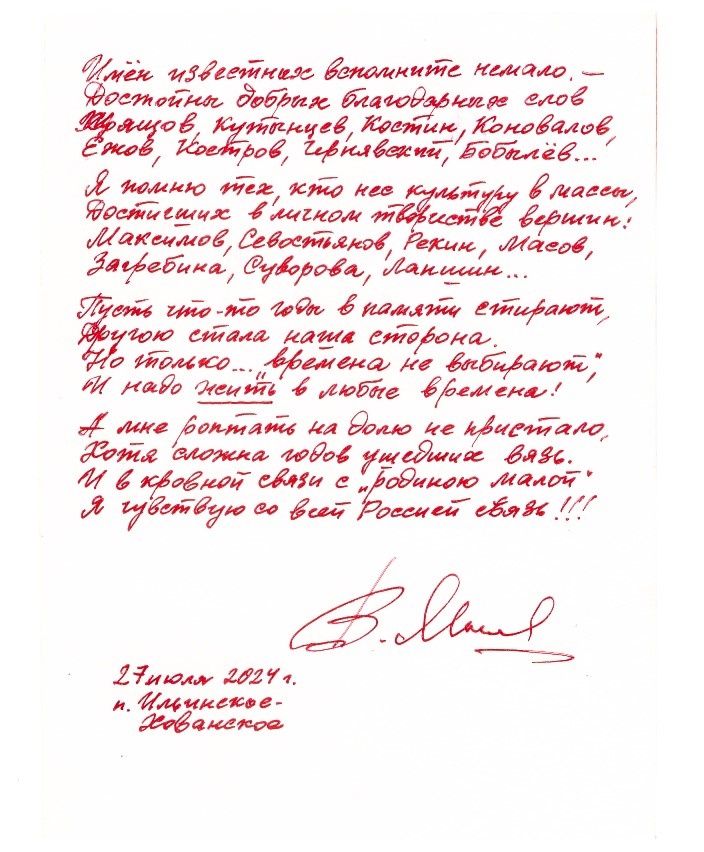 Имён известных вспомните немало. –
Достойны добрых благодарных слов
Хрящов, Кутынцев, Костин, Коновалов,
Ежов, Костров, Чернявский, Бобылёв...
Я помню тех, кто нес культуру в массы,
Достигших в личном творчестве вершин:
Максимов, Севостьянов, Рекин, Масов,
Загребина, Суворова, Лапшин...
Пусть что-то годы в памяти стирают,
Другою стала наша сторона.
Но только... „времена не выбирают",
И надо жить в любые времена!
А мне роптать на долю не пристало,
Хотя сложна годов ушедших вязь.
И в кровной связи с „родиною малой"
Я чувствую со всей Россией связь!!!
27 июля 2024 г.
п. Ильинское-
Хованское